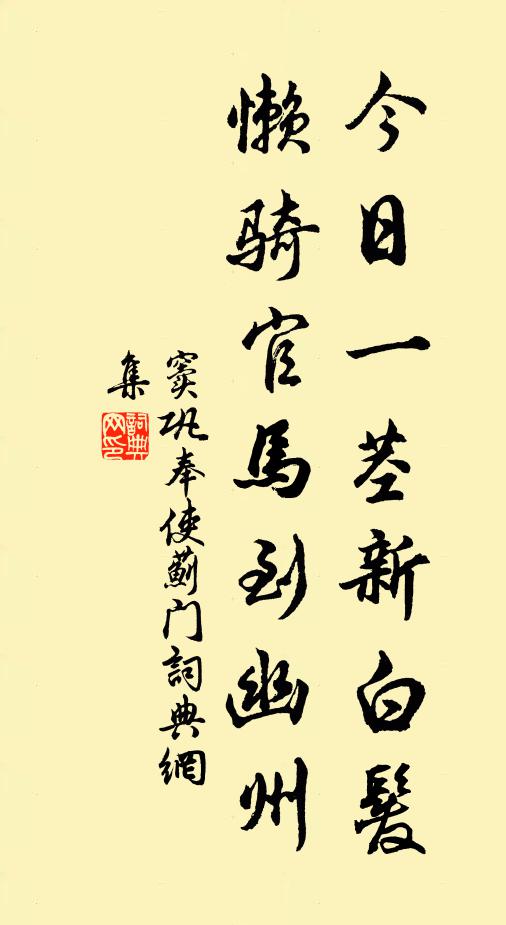 今日一茎新白髮
懶騎官馬到幽州
窦巩奉使薊门詞典網
集
詞典
网印